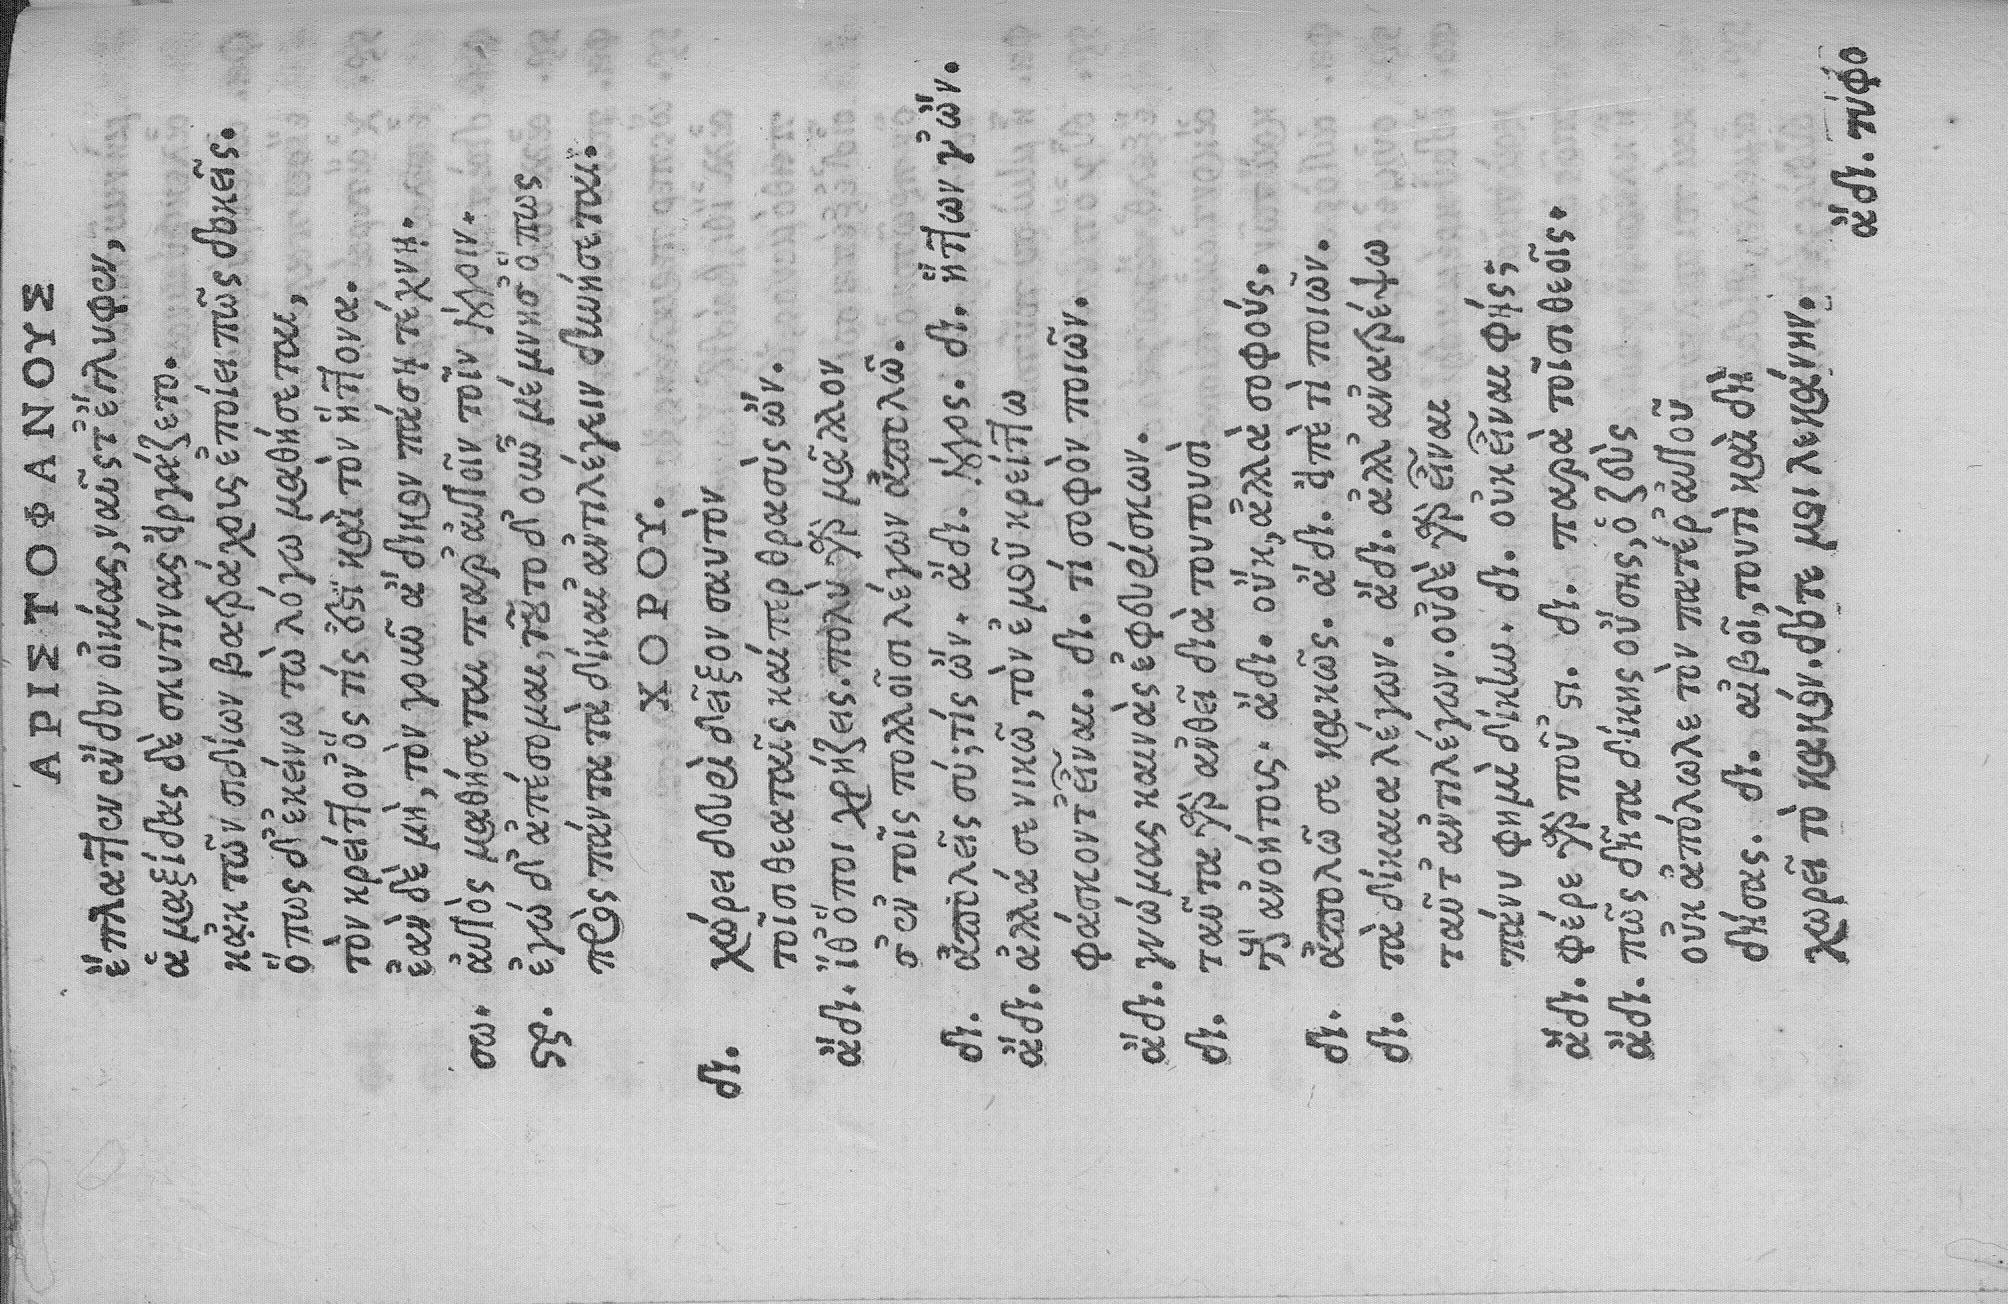 ΑΡΙΣΤΟΦΑΝΟΥΣ
ἔπλαττεν ἔνδον οἰκίας, ναῦς τ' ἔγλυφεν,
ἁμαξίδας δὲ σκυτίνας εἰργάζετο.
κἀκ τῶν σιδίων βατράχους ἐποίει πῶς δοκεῖς.
ὅπως δ' ἐκείνω τὼ λόγω μαθήσεται,
τὸν κρείττον' ὅς τίς ἐστὶ καὶ τὸν ἥττονα.
ἐὰν δὲ μὴ, τὸν γοῦν ἄδικον πάσῃ τέχνῃ.
σω. αὐτὸς μαθήσεται παρ' αὐτοῖν τοῖν λόγοιν.
στρ. ἐγώ δ' ἀπέσομαι, τοῦτο δ' οὖν μέμνησ' ὅπως
πρὸς πάντα τὰ δίκαι' ἀντιλέγειν δυνήσεται.
ΧΟΡΟΥ.
δι. χώρει δευρὶ δεῖξον σαυτὸν
τοῖσι θεαταῖς καίπερ θρασὺς ὤν.
ἄδι. ἴθ' ὅποι χρήζεις. πολὺ γὰρ μᾶλλον
σ' ἐν τοῖς πολλοῖσι λέγων ἀπολῶ.
δι. ἀπολεῖς σύ; τίς ὤν. ἄδι. λόγος. δι. ἥττων γ' ὤν.
ἄδι. ἀλλά σε νικῶ, τὸν ἐμοῦ κρείττω
φάσκοντ' εἶναι. δι. τί σοφὸν ποιῶν.
ἄδι. γνώμας καινὰς ἐφευρίσκων.
δι. ταῦτα γὰρ ἀνθεῖ διὰ τουτουσὶ
τοὺς ἀνοήτους. ἄδι. οὔκ, ἀλλὰ σοφούς.
δι. ἀπολῶ σε κακῶς. ἄδι. εἰπὲ τὶ ποιῶν.
δι. τὰ δίκαια λέγων. ἄδι. ἀλλ' ἀνατρέψω
ταῦτ' ἀντιλέγων. οὐδὲ γὰρ εἶναι
πάνυ φημὶ δίκην. δι. οὐκ εἶναι φής;
ἄδι. φέρε γὰρ ποῦ 'στι. δι. παρὰ τοῖσι θεοῖς.
ἄδι. πῶς δῆτα δίκης οὔσης, ὁ ζεὺς
οὐκ ἀπόλωλε τὸν πατέρ' αὑτοῦ
δήσας. δι. αἰβοῖ, τουτὶ καὶ δὴ
χωρεῖ τὸ κακόν. δότε μοι λεκάνην.
ἄδι. τυφο